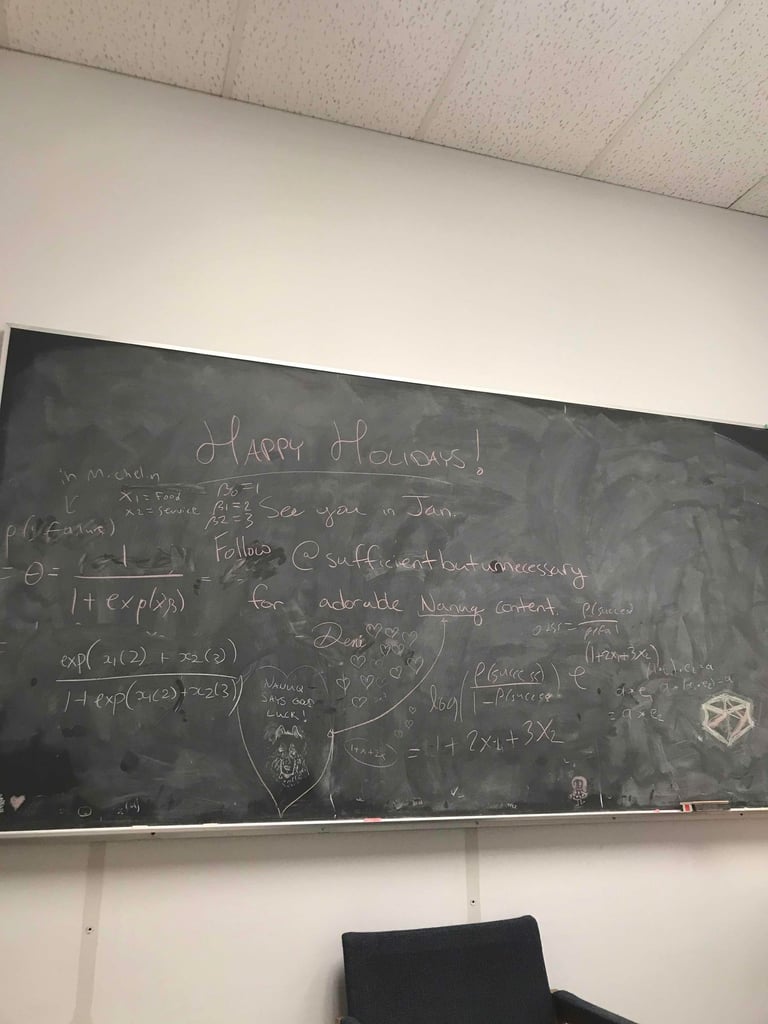 HAPPY HOLIDAYS!
in Michelin
X1 = Food
X2 = service
β0 = 1
β1 = 2
β2 = 3
See you in Jan.
Follow @sufficientbutunnecessary
for adorable Nanuq content.
= θ = 1 / 1 + exp(xβ) =
Deni
exp(x1(2) + x2(3)) / 1 + exp(x1(2) + x2(3)
NANUQ
SAYS GOOD
LUCK!
log( P(success) / 1 - P(success
e (1+2x1+3x2)
= 1 + 2X1 + 3X2